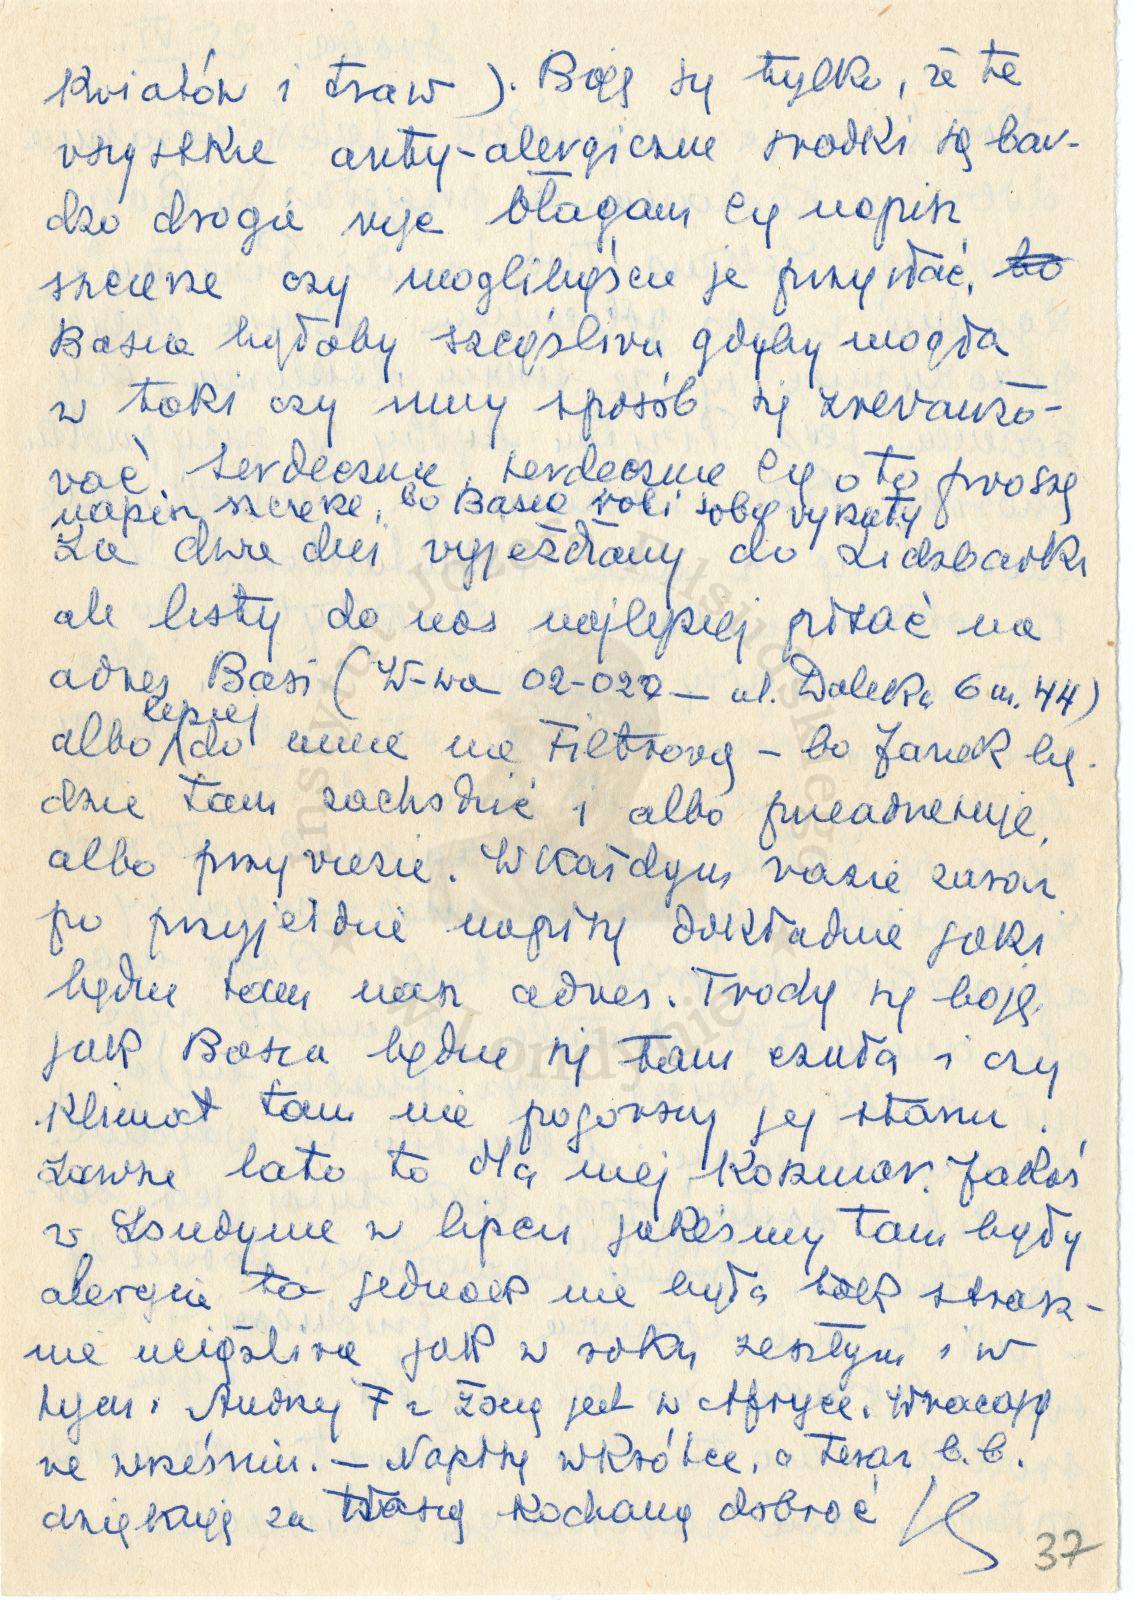 kwiatów i traw). Boję się tylko, że te
wszystkie anty-alergiczne środki są bar-
dzo drogie więc błagam Cię napisz
szczerze czy moglibyście je przysłać, bo
Basia byłaby szczęśliwa gdyby mogła
w taki czy inny sposób się zrewanżo-
wać. Serdecznie, serdecznie Cię o to proszę
napisz szczerze, bo Basia robi sobie wyrzuty
Za dwa dni wyjeżdżamy do Lidzbarka
ale listy do nas najlepiej pisać na
adres Basi (W-wa 02-022 — ul. Daleka 6 m. 44)
albo lepiej do mnie na Filtrową — bo Janek bę-
dzie tam zachodzić i albo przeadresuje,
albo przywiezie. W każdym razie zaraz
po przyjeździe napiszę dokładnie jaki
będzie tam nasz adres. Trochę się boję,
jak Basia będzie się tam czuła i czy
klimat tam nie pogorszy jej stanu.
Zawsze lato to dla niej koszmar. Jakoś
w Londynie w lipcu jakeśmy tam były
alergia ta jednak nie była tak strasz-
nie uciążliwa jak w roku zeszłym i w
tym. Andrzej F z żoną jest w Afryce. Wracają
we wrześniu. — Napiszę wkrótce, a teraz b.b.
dziękuję za Waszą kochaną dobroć
37
Instytut Józefa Piłsudskiego
w Londynie